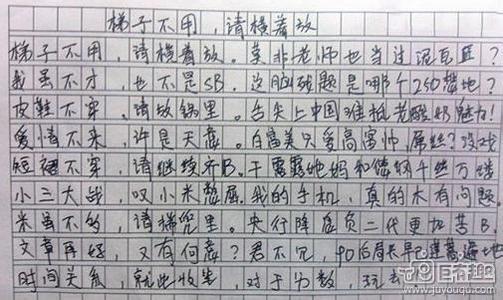 梯子不用,请横着放
梯子不用,请横着放。莫非老师也当过泥瓦匠?
我虽不才,也不是SB。这脑残题是哪个250整地?
皮鞋不穿,请放锅里。舌尖上中国谁抵老酸奶魅力!
爱情不来,许是天意。白富美只爱高富帅,屌丝?没戏
短裙不穿,请继续齐B。干露露她妈和
小三大战,叹小米憋屈。我的手机,真的木有问题。
米虽不多,请梯兜里。央行降息负二代更加苦B。
文章再好,又有何意?君不见,90后周
时间关系,就此收笔,对于分数,
www.juyouqu.com